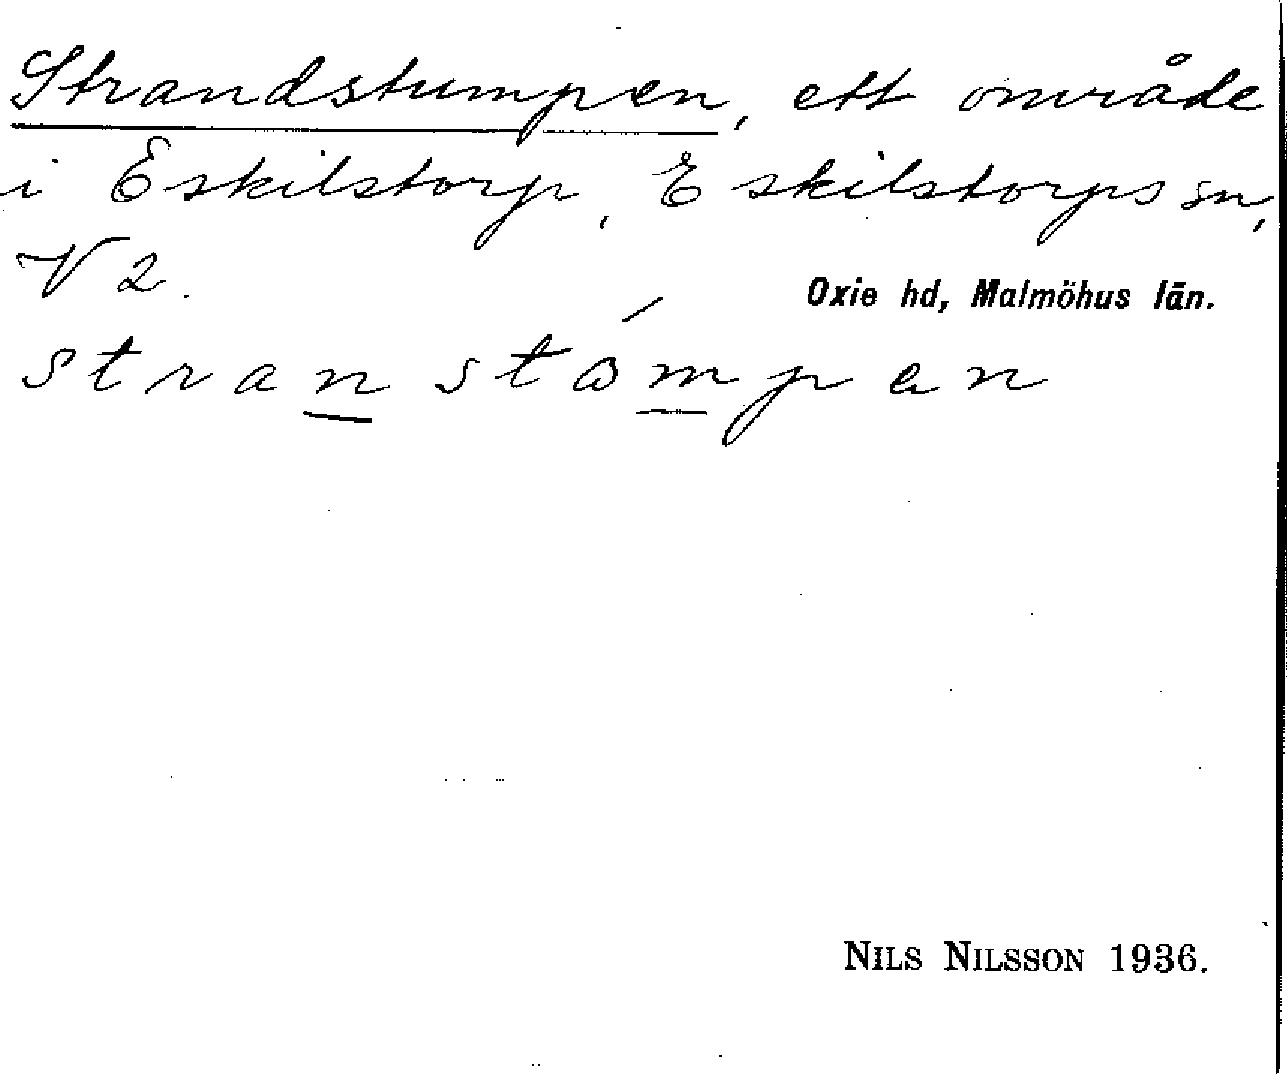 Strandstumpen, ett område
i Eskilstorp, Eskilstorps sn,
V 2.
Oxie hd, Malmöhus län.
stran stómpen
NILS NILSSON 1936.